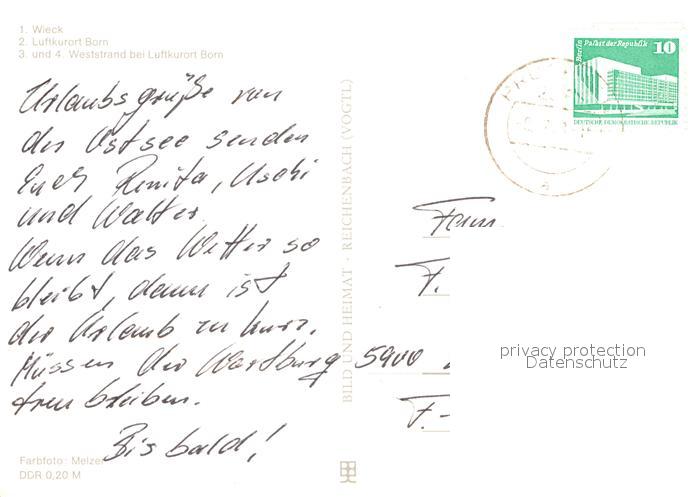 1. Wieck
2. Luftkurort Born
3. und 4. Weststrand bei Luftkurort Born
Urlaubsgrüße von
der Ostsee senden
Euch Renita, Uschi
und Walter.
Wenn das Wetter so
bleibt, dann ist
der Urlaub zu kurz.
Müssen der Wartburg
treu bleiben.
Bis bald!
Farbfoto: Melzer
DDR 0,20 M
BILD UND HEIMAT · REICHENBACH (VOGTL)
Berlin Palast der Republik 10
DEUTSCHE DEMOKRATISCHE REPUBLIK
a
Fam.
F.
5900
F.-
privacy protection
Datenschutz